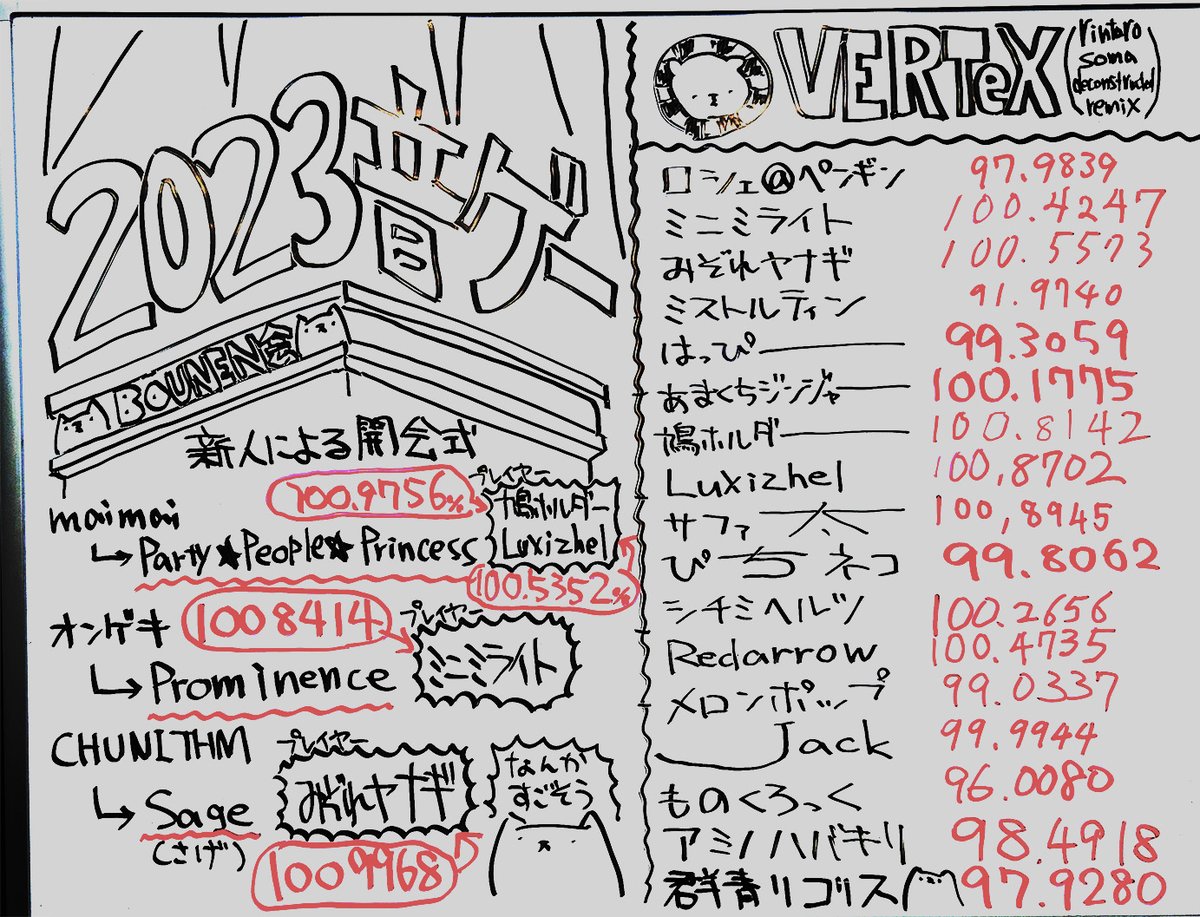 2023音ゲー
BOUNEN会
新人による開会式
maimai
100.9756%
プレイヤー
鳩ホルダー
Luxizhel
↳Party★People★Princess
100.5352%
オンゲキ
1008414
プレイヤー
ミニミライト
↳Prominence
CHUNITHM
プレイヤー
みぞれヤナギ
↳Sage
(さげ)
1009968
なんか
すごそう
OVERTeX (rintaro soma deconstructed remix)
ロシェ@ペンギン 97.9839
ミニミライト 100.4247
みぞれヤナギ 100.5573
ミストルティン 91.9740
はっぴー 99.3059
あまくちジンジャー 100.1775
鳩ホルダー 100.8142
Luxizhel 100,8702
サファ太 100,8945
ぴちネコ 99.8062
シチミヘルツ 100.2656
Redarrow 100.4735
メロンポップ 99.0337
Jack 99.9944
ものくろっく 96.0080
アミノハバキリ 98.4918
群青リコリス 97.9280